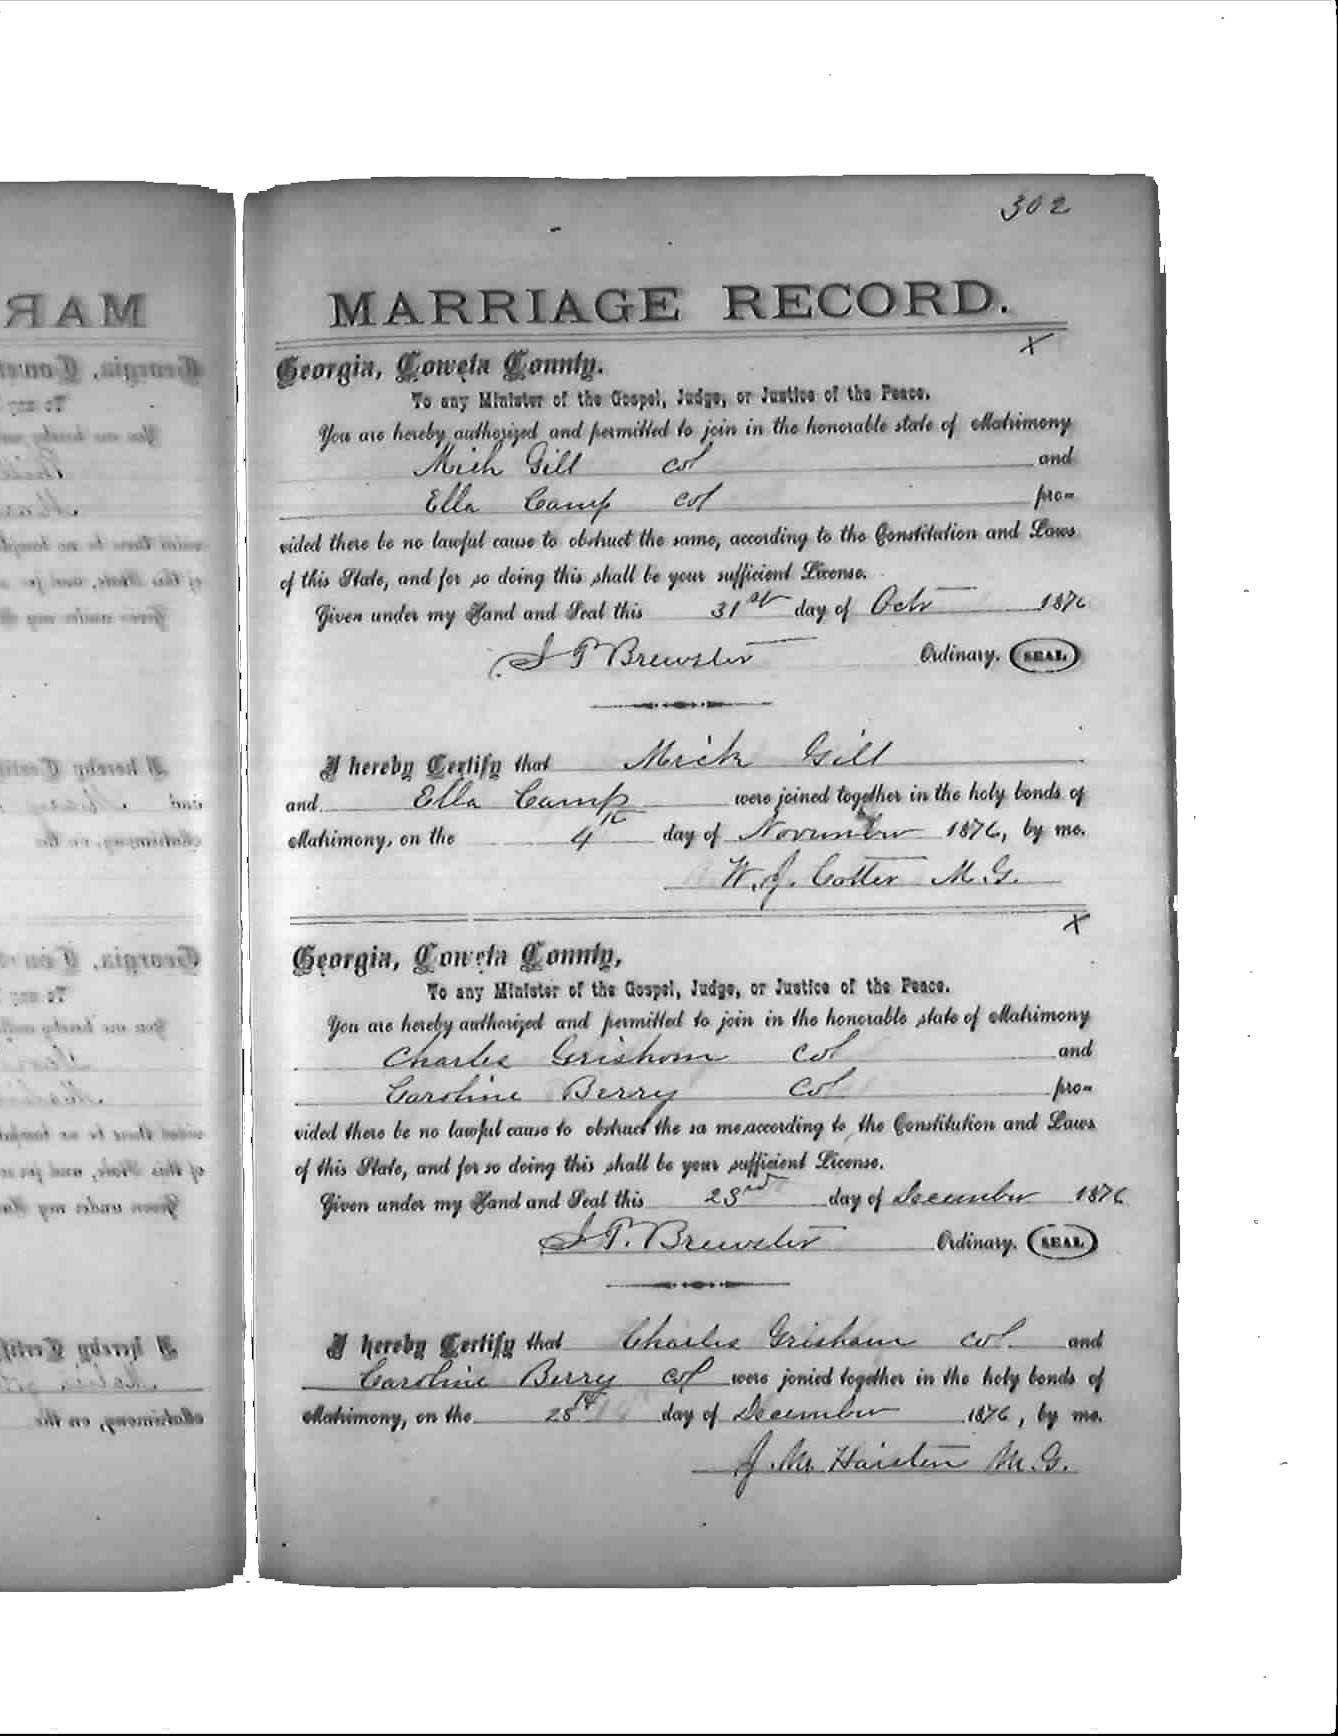 302
MARRIAGE RECORD.
x
Georgia, Coweta County.
To any Minister of the Gospel, Judge, or Justice of the Peace.
You are hereby authorized and permitted to join in the honorable state of Matrimony
Mich Gill col and
Ella Camp col pro-
vided there be no lawful cause to obstruct the same, according to the Constitution and Laws
of this State, and for so doing this shall be your sufficient License.
Given under my Hand and Seal this 31st day of Octr 1876
J P Brewster Ordinary. SEAL
I hereby Certify that Mich Gill
and Ella Camp were joined together in the holy bonds of
Matrimony, on the 4th day of November 1876, by me.
W. J. Cotter M. G.
x
Georgia, Coweta County,
To any Minister of the Gospel, Judge, or Justice of the Peace.
You are hereby authorized and permitted to join in the honorable state of Matrimony
Charles Grishom Col and
Caroline Berry Col pro-
vided there be no lawful cause to obstruct the sa me,according to the Constitution and Laws
of this State, and for so doing this shall be your sufficient License.
Given under my Hand and Seal this 23rd day of December 1876
J P. Brewster Ordinary. SEAL
I hereby Certify that Charles Grisham col and
Caroline Berry col were jonied together in the holy bonds of
Matrimony, on the 28th day of December 1876, by me.
J. M. Haisten M. G.